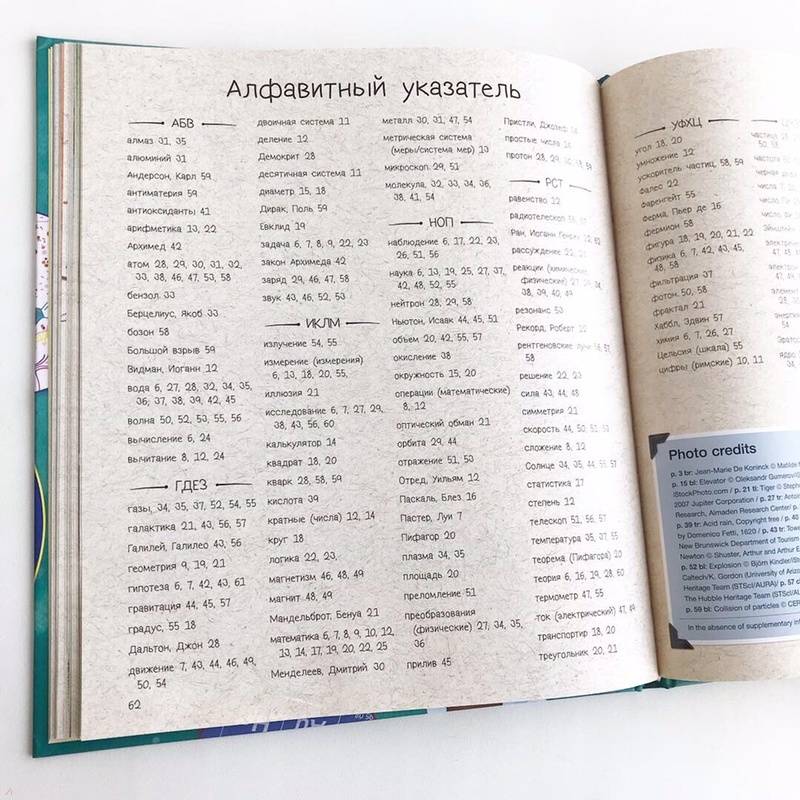 Алфавитный указатель
АБВ
алмаз 31, 35
алюминий 31
Андерсон, Карл 59
антиматерия 59
антиоксиданты 41
арифметика 13, 22
Архимед 42
атом 28, 29, 30, 31, 32,
33, 38, 46, 47, 53, 58
бензол 33
Берцелиус, Якоб 33
бозон 58
Большой взрыв 59
Видман, Иоганн 12
вода 6, 27, 28, 32, 34, 35,
36, 37, 38, 39, 42, 45
волна 50, 52, 53, 55, 56
вычисление 6, 24
вычитание 8, 12, 24
ГДЕЗ
газы, 34, 35, 37, 52, 54, 55
галактика 21, 43, 56, 57
Галилей, Галилео 43, 56
геометрия 9, 19, 21
гипотеза 6, 7, 42, 43, 61
гравитация 44, 45, 57
градус, 55 18
Дальтон, Джон 28
движение 7, 43, 44, 46, 49,
50, 54
62
двоичная система 11
деление 12
Демокрит 28
десятичная система 11
диаметр 15, 18
Дирак, Поль 59
Евклид 19
задача 6, 7, 8, 9, 22, 23
закон Архимеда 42
заряд 29, 46, 47, 58
звук 43, 46, 52, 53
ИКЛМ
излучение 54, 55
измерение (измерения)
6, 13, 18, 20, 55,
иллюзия 21
исследование 6, 7, 27, 29,
38, 43, 56, 60
калькулятор 14
квадрат 18, 20
кварк 28, 58, 59
кислота 39
кратные (числа) 12, 14
круг 18
логика 22, 23,
магнетизм 46, 48, 49
магнит 48, 49
Мандельброт, Бенуа 21
математика 6, 7, 8, 9, 10, 12,
13, 14, 17, 19, 20, 22, 25
Менделеев, Дмитрий 30
металл 30, 31, 47, 54
метрическая система
(меры/система мер) 13
микроскоп 29, 51
молекула, 32, 33, 34, 36,
38, 41, 54
НОП
наблюдение 6, 17, 22, 23,
26, 51, 56
наука 6, 13, 19, 25, 27, 37,
42, 48, 52, 55
нейтрон 28, 29, 58
Ньютон, Исаак 44, 45, 51
объем 20, 42, 55, 57
окисление 38
окружность 15, 20
операции (математические)
8, 12
оптический обман 21
орбита 29, 44
отражение 51, 53
Отред, Уильям 12
Паскаль, Блез 16
Пастер, Луи 7
Пифагор 20
плазма 34, 35
площадь 20
преломление 51
преобразования
(физические) 27, 34, 35,
36
прилив 45
Пристли, Джозеф
простые числа
протон 28, 29,
РСТ
равенство 12
радиотелескоп
Ран, Иоганн Генрих
рассуждение 22,
реакции (химические,
физические) 27,
38, 39, 40, 49
резонанс 53
Рекорд, Роберт 12
рентгеновские лучи
58
решение 22, 23
сила 43, 44, 48
симметрия 21
скорость 44, 50, 51, 53
сложение 8, 12
Солнце 34, 35, 44, 55, 57
статистика 17
степень 12
телескоп 51, 56, 57
температура 35, 37, 55
теорема (Пифагора) 20
теория 6, 16, 19, 28, 60
термометр 47, 55
ток (электрический) 47, 49
транспортир 18, 20
треугольник 20, 21
УФХЦ
угол 18, 20
умножение 12
ускоритель частиц, 58, 59
фалес 22
фаренгейт 55
ферма, Пьер де 16
фермион 58
фигура 18, 19, 20, 21, 22
физика 6, 7, 42, 43, 45,
48, 58
фильтрация 37
фотон 50, 58
фрактал 21
Хаббл, Эдвин 57
химия 6, 7, 26, 27
Цельсия (шкала) 55
цифры (римские) 10, 11
Photo credits
p. 3 bl: Jean-Marie De Koninck © Matilde
p. 15 bl: Elevator © Oleksandr Gumerov/
iStockPhoto.com / p. 21 tl: Tiger © Steph
2007 Jupiter Corporation / p. 27 tr: Anto
Research, Almaden Research Center / p.
p. 39 tr: Acid rain, Copyright free / p. 40
by Domenico Fetti, 1620 / p. 43 tr: Tower
New Brunswick Department of Tourism
Newton © Shuster, Arthur and Arthur E.
p. 52 bl: Explosion © Björn Kindler/iSto
Caltech/K. Gordon (University of Arizo
Heritage Team (STScI/AURA) / p. 57 c
The Hubble Heritage Team (STScI/AU
p. 59 bl: Collision of particles © CER
In the absence of supplementary inf